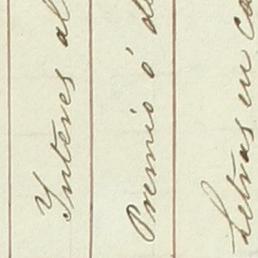 Ynteres al
Premio ó de
Letras en ca